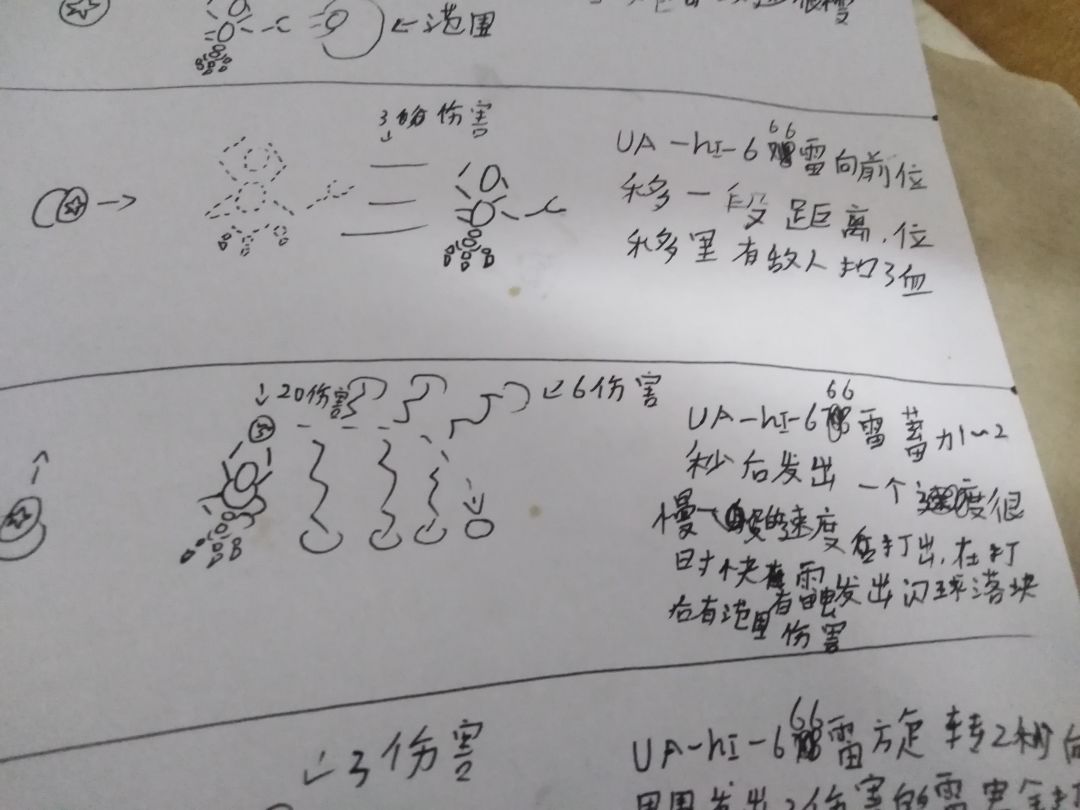 ←范围
很
3伤害
66
UA-hI-6雷向前位
移一段距离,位
移里有敌人扣3血
20伤害
6伤害
66
UA-hI-6雷蓄力1~2
秒后发出一个速度很
慢的速度打出,在打
时快有雷电发出闪球落块
后有范围伤害
3伤害
66
UA-hI-6雷旋转2秒向
周围发出2伤害的雷电